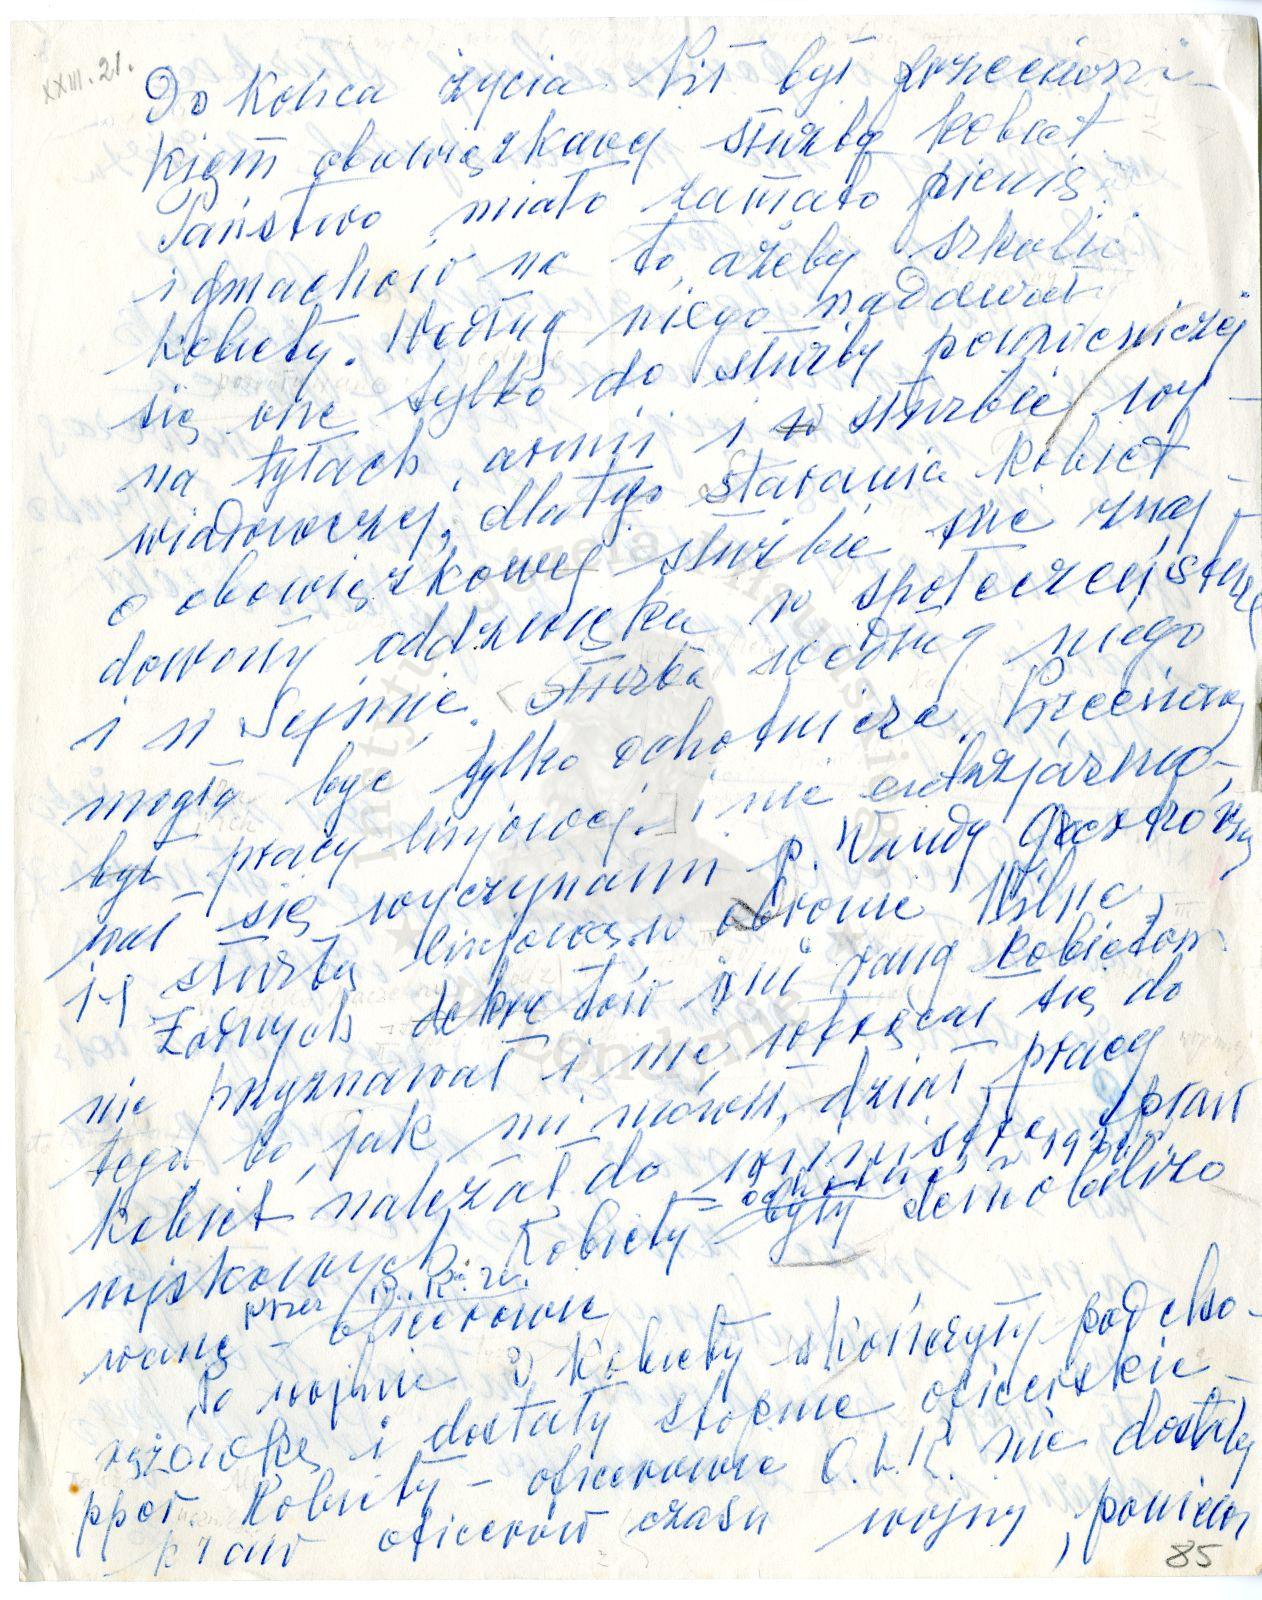 XXIII.21.
Do końca życia Pił był przeciwni-
kiem obowiązkowej służby kobiet.
Państwo miało zamało pienię.
i gmachów na to, ażeby szkolić
kobiety. Według niego nadawały
się one tylko do służby pomocniczej
na tyłach armii i w służbie wy-
wiadowczej, dlatego starania kobiet
o obowiązkowej służbie nie znaj-
dowały oddźwięku w społeczeństwie
i w Sejmie. Służba według niego
mogła być tylko ochotnicza. Przeciwny
był pracy linjowej i nie entuzjazmo-
wał się wyczynami p. Wandy Gertzówny
i służbą linjową w obronie Wilna.
Żadnych dekretów ani rang kobietom
nie przyznawał i nie wtrącał się do
tego bo, jak mi mówił, dział pracy
kobiet należał do ministra spraw
wojskowych. Kobiety - ochotn. były w 1920 demobilizo
wane przez
- oficerowie
Po wojnie 2 kobiety skończyły podcho-
rążówkę i dostały stopnie oficerskie
ppor. Kobiety - oficerowie O.L.K. nie dostały
praw oficerów czasu wojny, ponieważ
85
Instytut Józefa Piłsudskiego
w Londynie